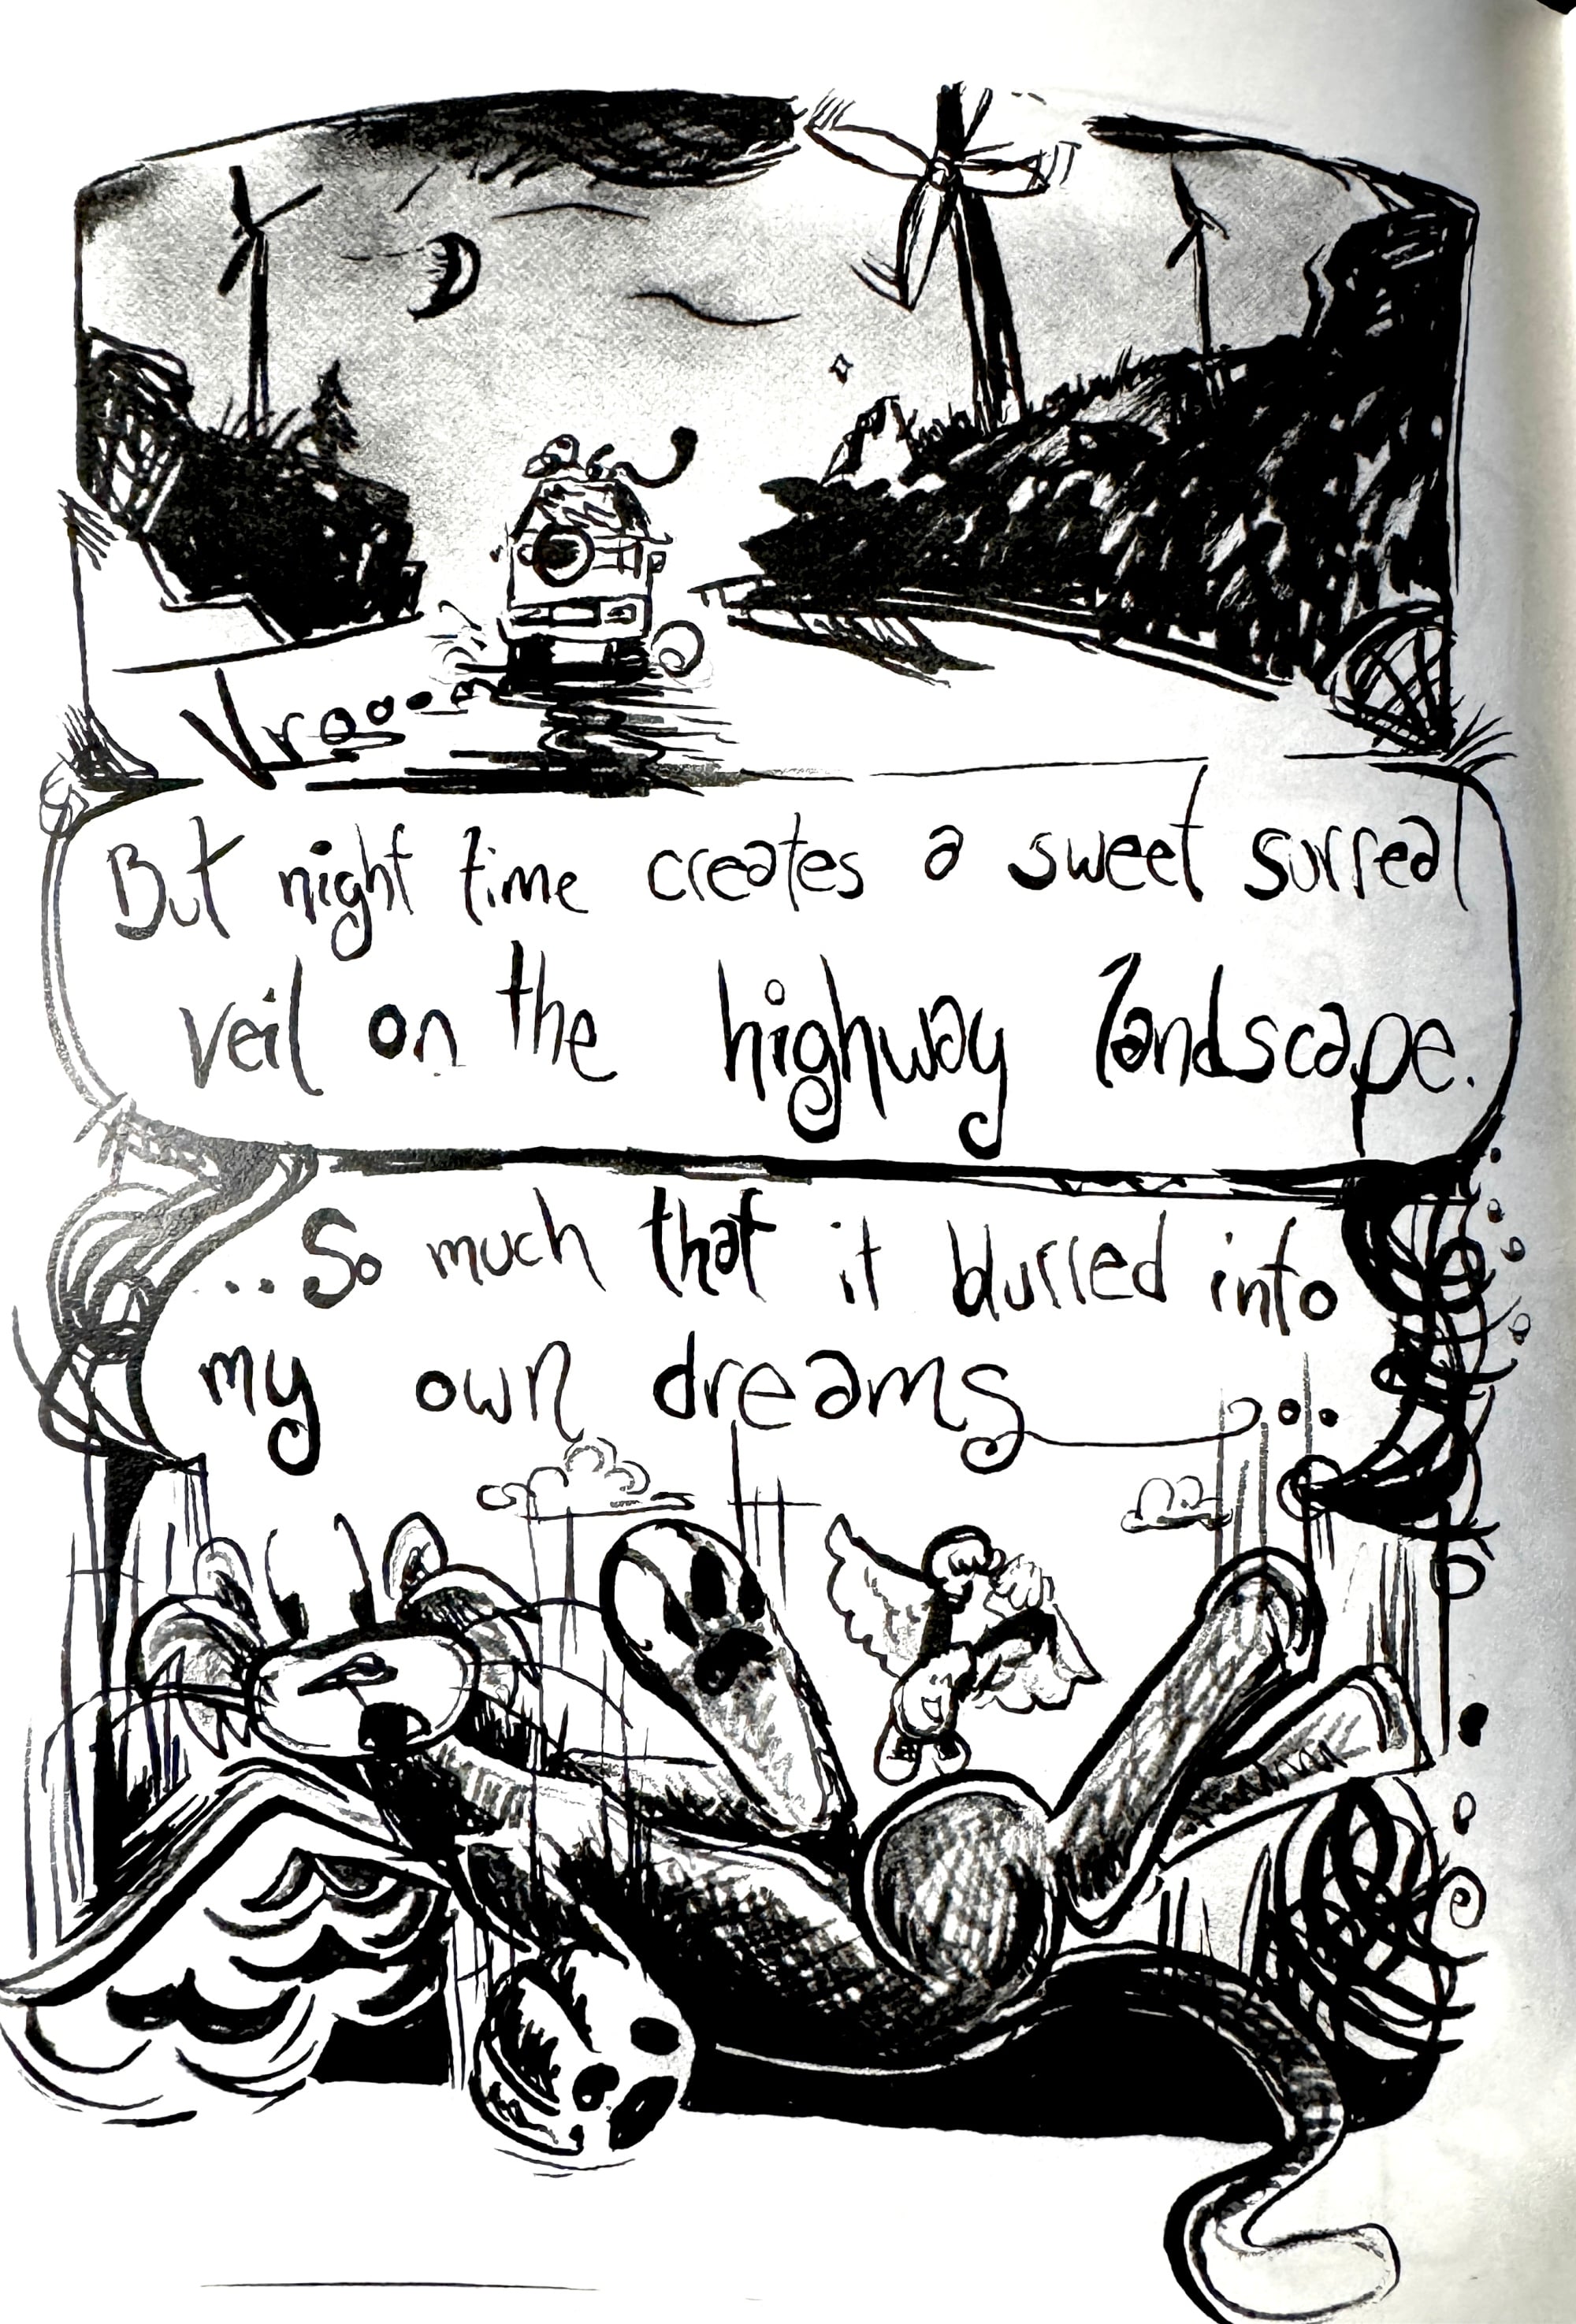 Vrooo...
But night time creates a sweet surreal
veil on the highway landscape.
..So much that it blurred into
my own dreams...